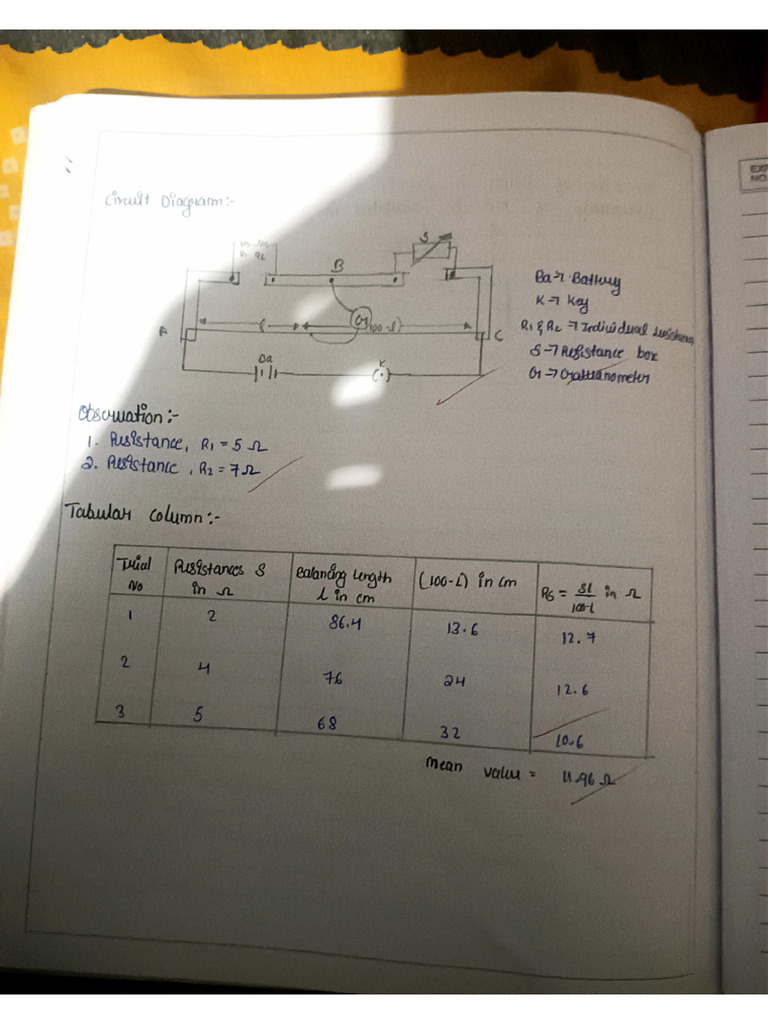 Circuit Diagram:-
S
R1 R2
B
Ba → Battery
K → Key
G
(100-l)
R1 & R2 → Individual
A
C
S → Resistance box
Ba
K
G →
Observation:-
1. Resistance, R1 = 5 Ω
2. Resistance, R2 = 7Ω
Tabular column:-
Trial No
Resistances S in Ω
Balancing length l in cm
(100-l) in cm
RS = Sl/100-l in Ω
1 2 86.4 13.6 12.7
2 4 76 24 12.6
3 5 68 32 10.6
mean value = 11.96 Ω
EXP
NO.